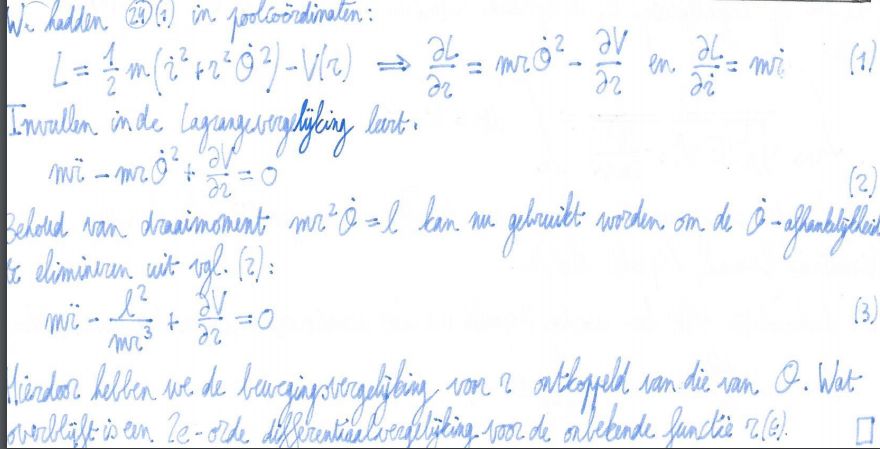 We hadden (29)(1) in poolcoördinaten:
L = 1/2 m(ṙ² + r²θ̇²) - V(r) ⟹ ∂L/∂r = mrθ̇² - ∂V/∂r en ∂L/∂ṙ = mṙ (1)
Invullen in de Lagrangevergelijking leert.
mr̈ - mrθ̇² + ∂V/∂r = 0 (2)
Behoud van draaimoment mr²θ̇ = l kan nu gebruikt worden om de θ̇-afhankelijkheid
te elimineren uit vgl. (2):
mr̈ - l²/mr³ + ∂V/∂r = 0 (3)
Hierdoor hebben we de bewegingsvergelijking voor r ontkoppeld van die van θ. Wat
overblijft is een 2e-orde differentiaalvergelijking voor de onbekende functie r(t). □